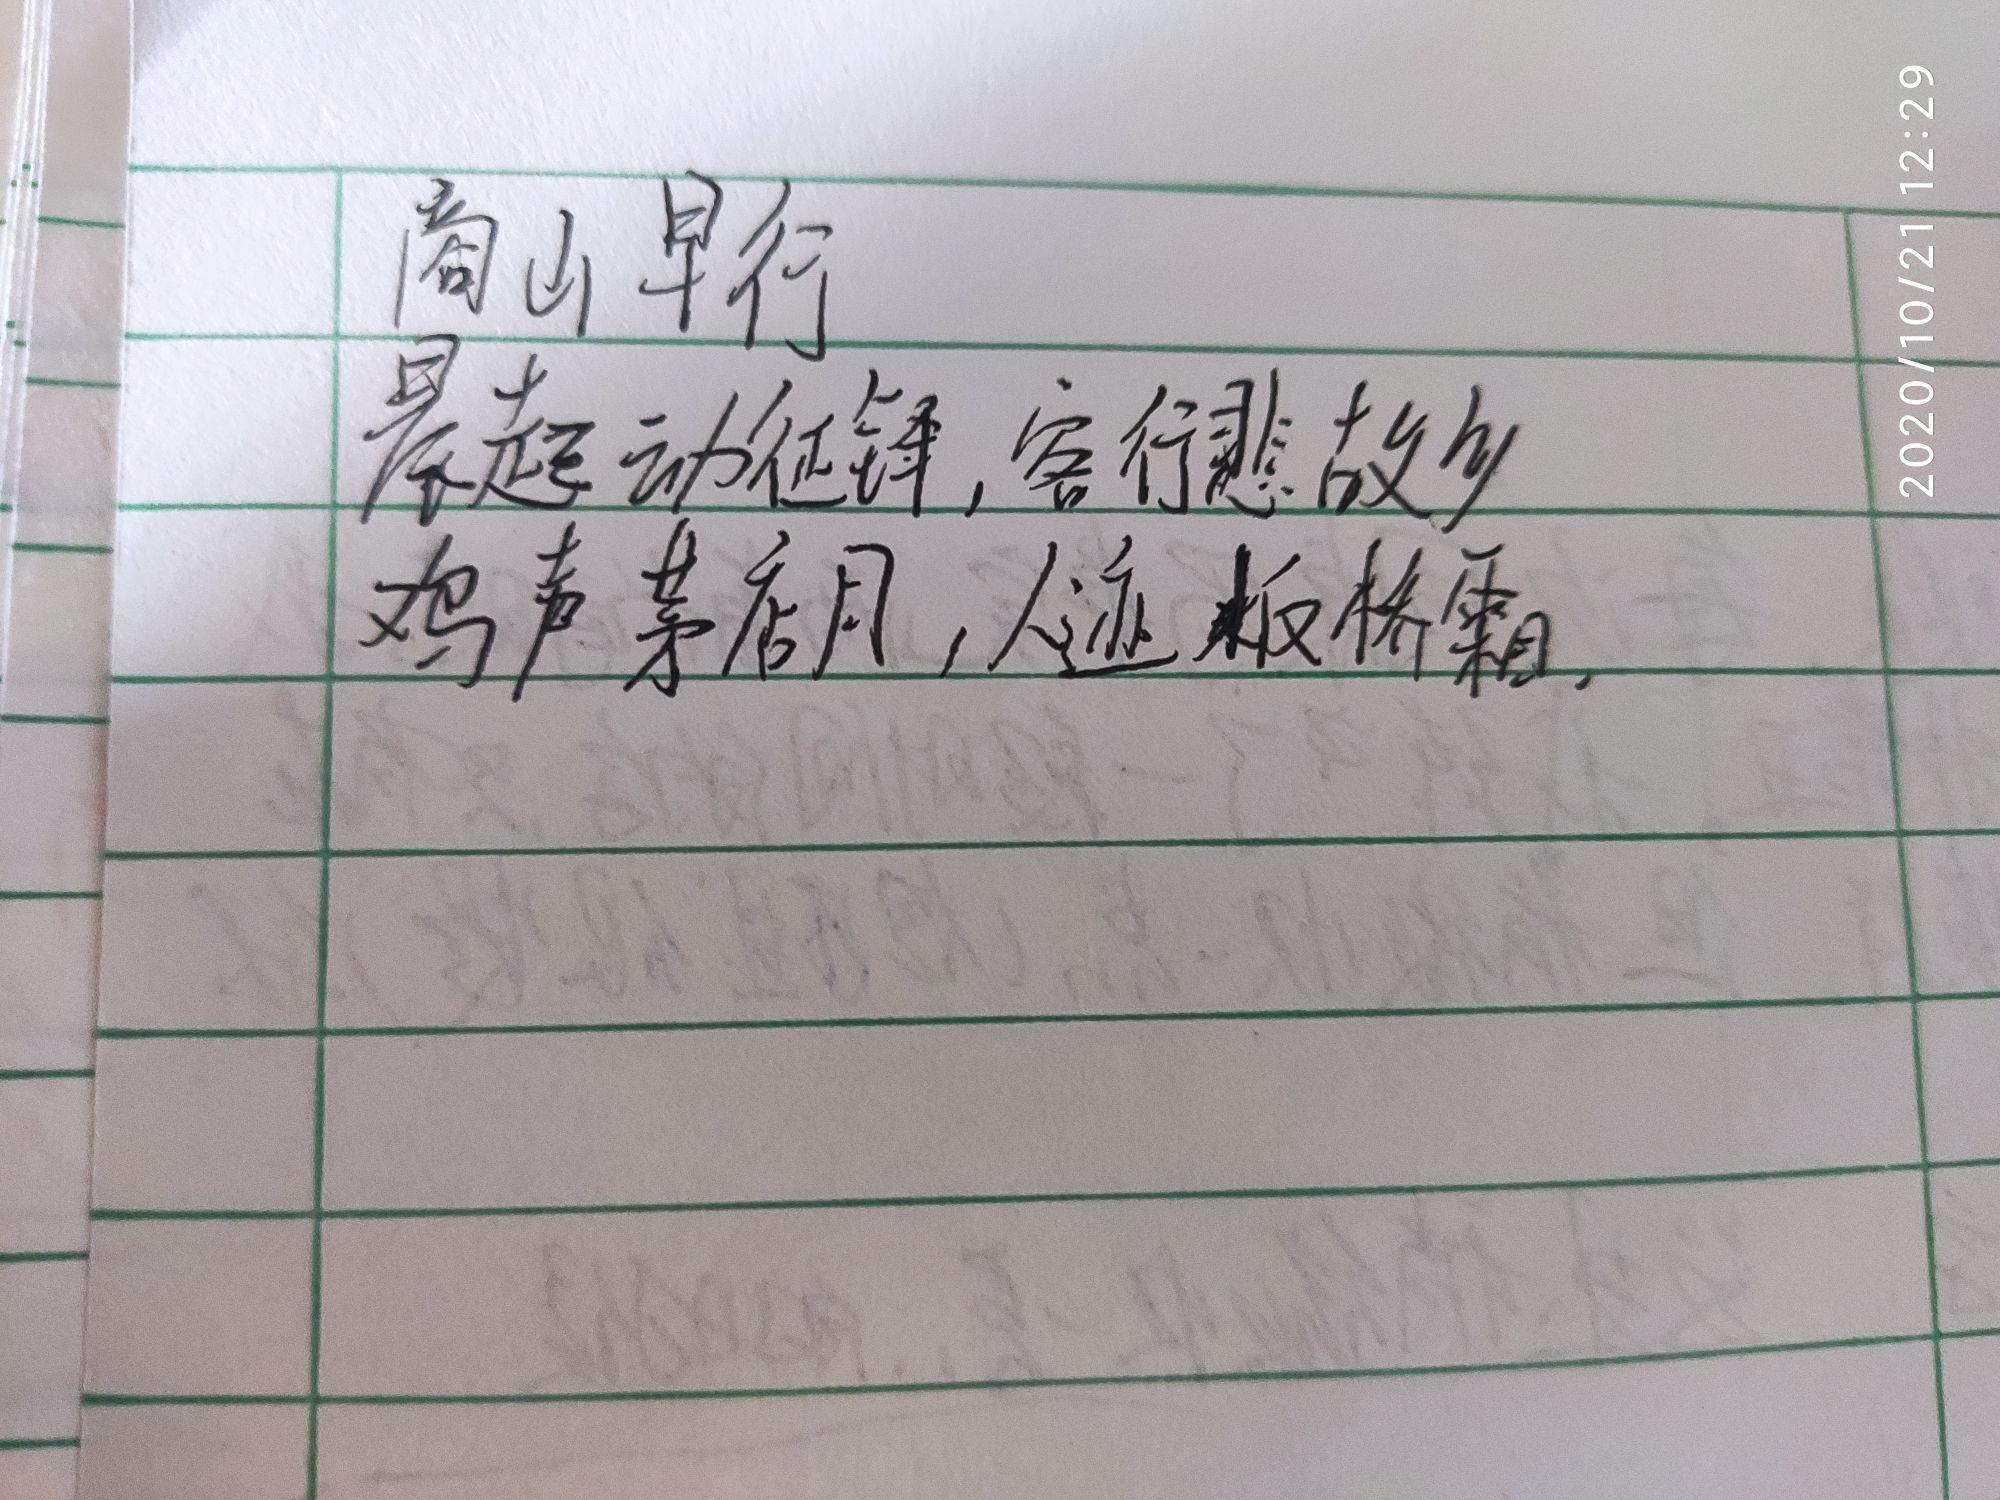 商山早行
晨起动征铎,客行悲故乡
鸡声茅店月,人迹板桥霜.
2020/10/21 12:29